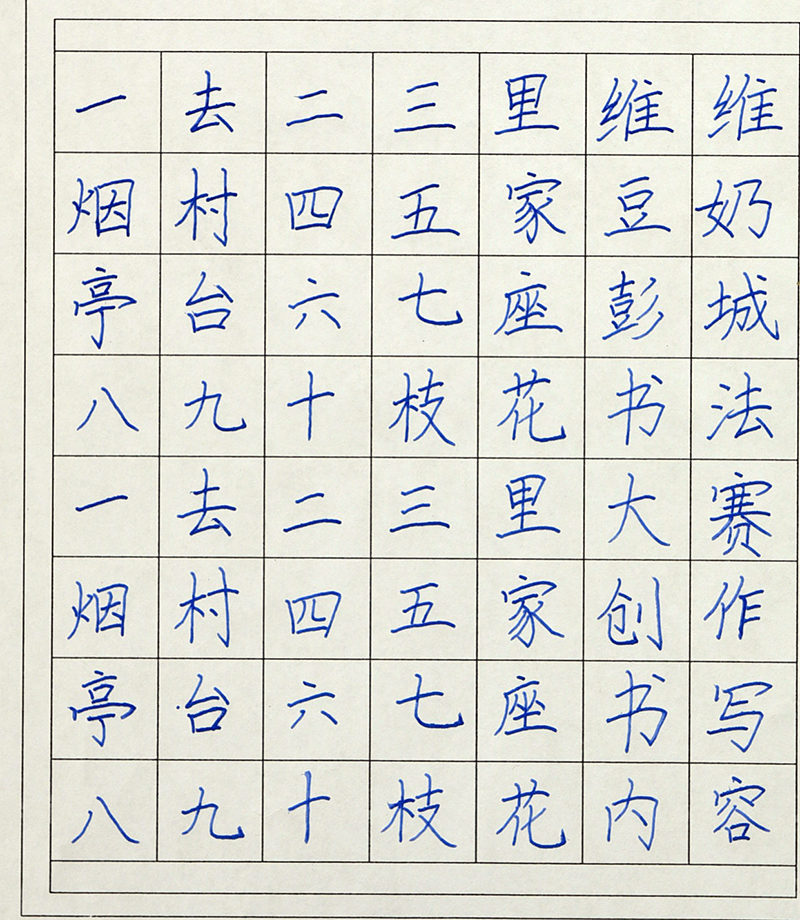 一去二三里维维
烟村四五家豆奶
亭台六七座彭城
八九十枝花书法
一去二三里大赛
烟村四五家创作
亭台六七座书写
八九十枝花内容